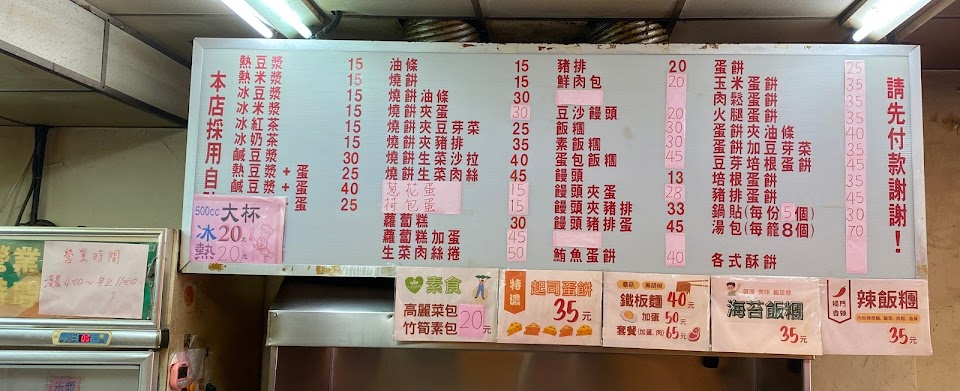 本店採用自
熱豆漿 15
熱米漿 15
冰豆漿 15
冰米漿 15
冰紅茶 15
冰奶茶
鹹豆漿
熱豆漿+蛋
鹹豆漿+蛋
500cc 大杯
冰20元
熱20元
油條 15
燒餅 15
燒餅油條 30
燒餅夾蛋 30
燒餅夾豆芽菜 25
燒餅夾豬排 35
燒餅生菜沙拉 40
燒餅生菜肉絲 45
蔥花蛋 15
荷包蛋 15
蘿蔔糕 30
蘿蔔糕加蛋 45
生菜肉絲捲 50
豬排 20
鮮肉包 20
豆沙饅頭 20
飯糰 30
素飯糰 30
蛋包飯糰 45
饅頭 13
饅頭夾蛋 28
饅頭夾豬排 33
饅頭豬排蛋 45
鮪魚蛋餅 40
蛋餅 25
玉米蛋餅 35
肉鬆蛋餅 35
火腿蛋餅 35
蛋餅夾油條 40
蛋餅加豆芽菜 35
豆芽培根蛋餅
培根蛋餅
豬排蛋餅 45
鍋貼(每份5個) 30
湯包(每籠8個) 70
各式酥餅
請先付款謝謝!
營業
營業時間
素食
高麗菜包
竹筍素包 20元
特濃
起司蛋餅
35元
蘑菇 黑胡椒
鐵板麵 40元
加蛋 50元
套餐(加蛋、肉) 65元
海苔飯糰
35元
辣飯糰
35元